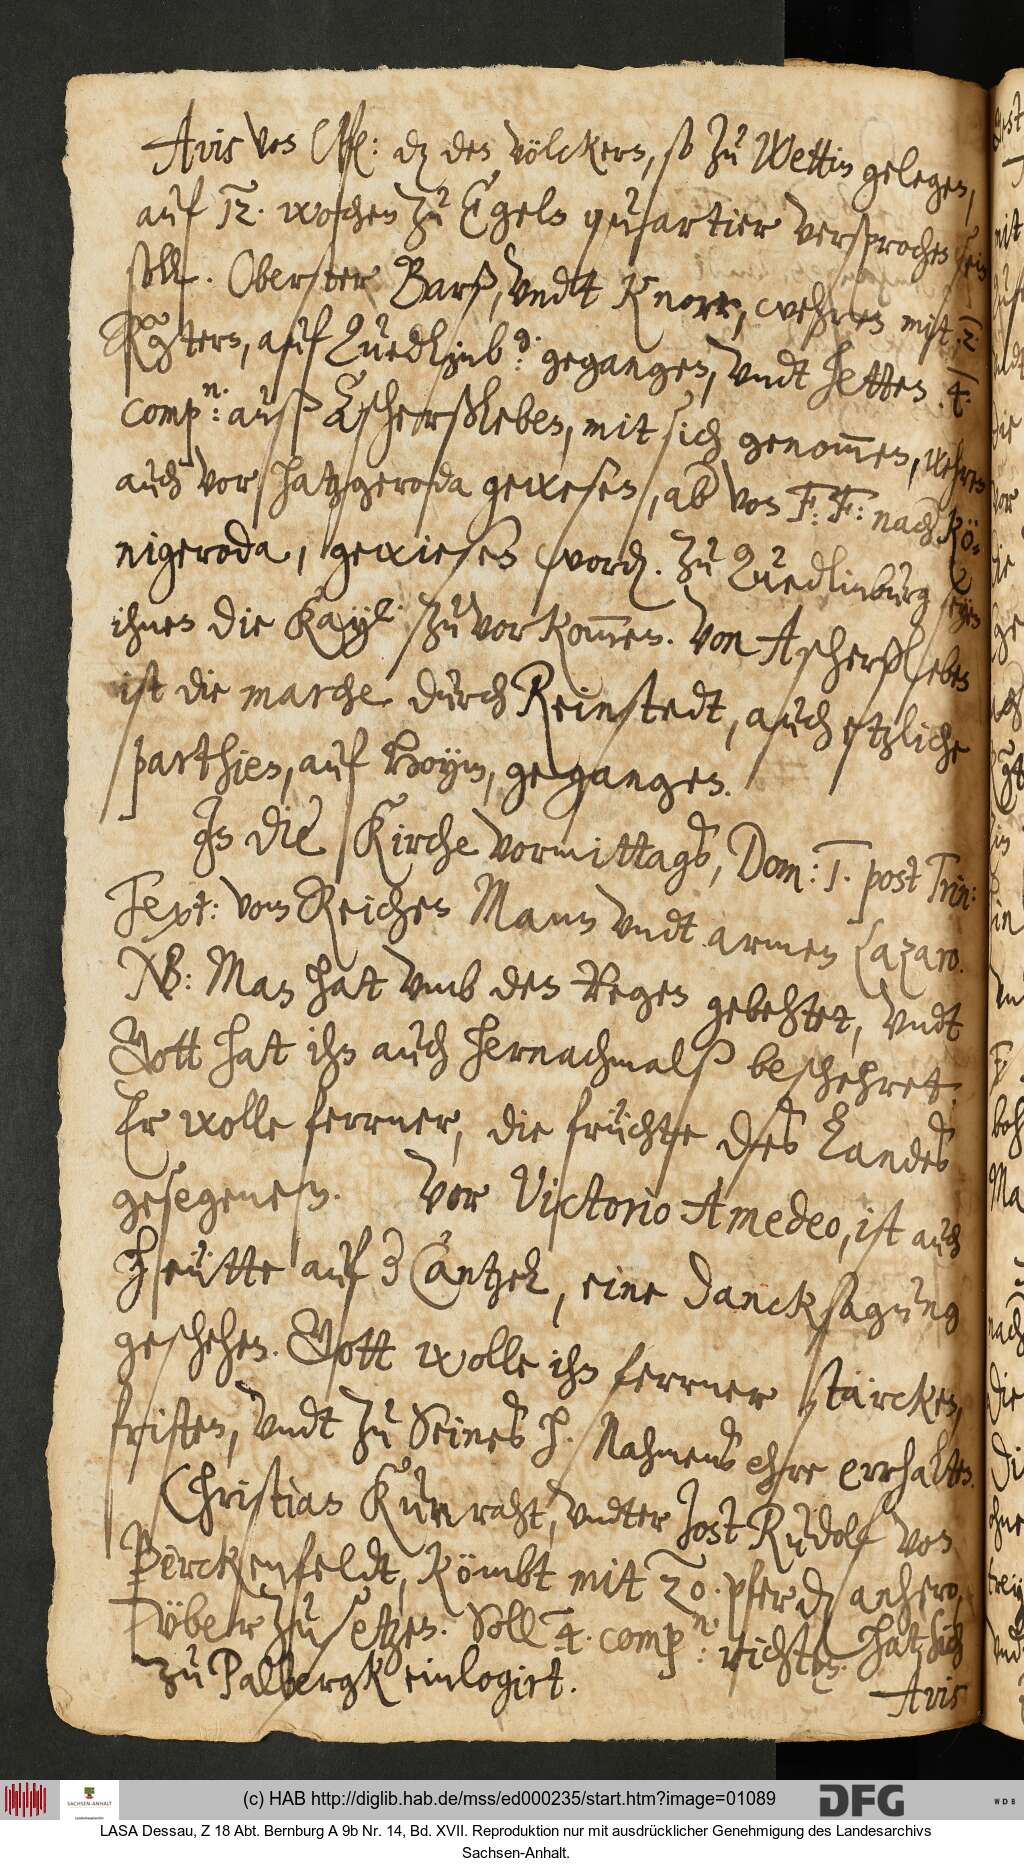 Avis von Cöh: dz den völckern, so zu Wettin gelegen,
auf 12. wochen zu Egeln quartier versprochen sein
soll. Oberster Barß, vndt Knorr, wehren mitt .2
Rgtern, auf Quedlinb.g: gegangen, vndt hetten .4.
comp.n: auß Ascherßleben, mit sich genom̅en, wehren
auch vor hatzgeroda gewesen, ab von F. F: nach Kö-
nigeroda, gewiesen word. Zu Quedlinburg seyen
ihnen die Kayl. zuvor kom̅en. Von Ascherßleben
ist die marche durch Reinstedt, auch etzliche
parthien, auf Hoym, gegangen.
In die Kirche vormittags, Dom: 1. post Trin:
Text: vom Reichen Mann vndt armen Lazaro.
NB: Man hatt vmb den Regen gebehtet, vndt
Gott hat ihn auch hernachmalß beschehret.
Er wolle ferrner, die früchte des Landes
gesegenen. Vor Victorio Amedeo, ist auch
heütte auf 3 Cantzeln, eine Dancksagung
geschehen. Gott wolle ihn ferrner stärcken,
fristen, vndt zu Seines h. Nahmens ehre errhalten.
Christian Kunraht, vndter Jost Rudolf von
Berckenfeldt, kömbt mit 20. pferden anhero,
vöber zu setzen. Soll 4. comp.n: richten. hat sich
zu Palbergk einlogirt.
Avis
(c) HAB http://diglib.hab.de/mss/ed000235/start.htm?image=01089
SACHSEN-ANHALT
DFG
WDB
LASA Dessau, Z 18 Abt. Bernburg A 9b Nr. 14, Bd. XVII. Reproduktion nur mit ausdrücklicher Genehmigung des Landesarchivs
Sachsen-Anhalt.